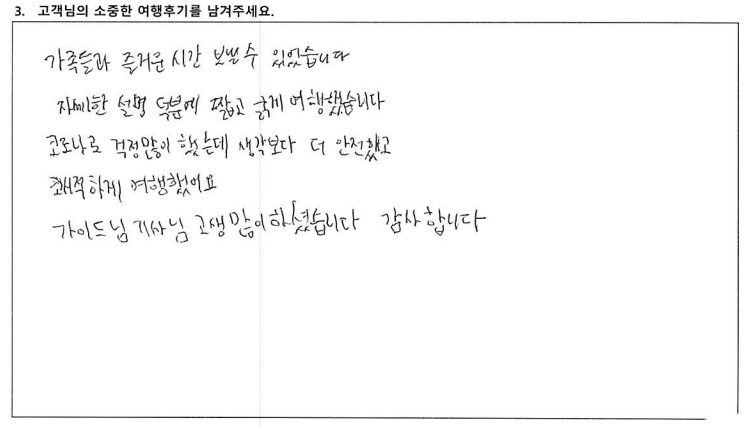 3. 고객님의 소중한 여행후기를 남겨주세요.
가족들과 즐거운 시간 보낼수 있었습니다
자세한 설명 덕분에 짧고 굵게 여행했습니다
코로나로 걱정많이 했는데 생각보다 더 안전했고
쾌적하게 여행했어요
가이드님 기사님 고생 많이하셨습니다 감사합니다